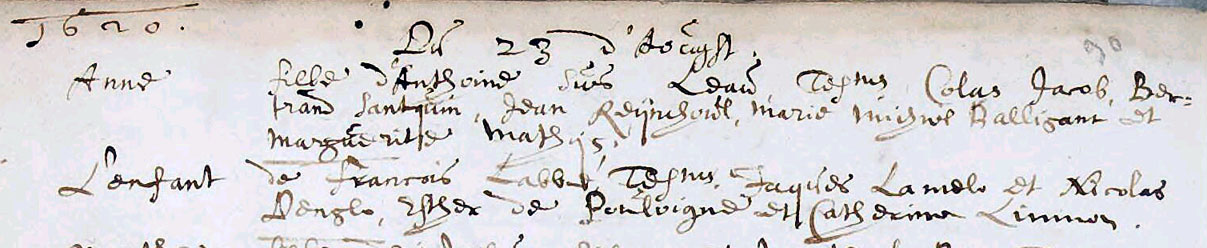 1620.
Du 23 d'Aougst. 90
Anne fille d'Anthoine Leau, Tesms. Colas Jacob, Ber=
trand Santquin, Jean Reijnchowl, Marie Michiel Balligant et
Marguerite Mathijs.
L'enfant de Francois Labbe, Tesms. Jaques Lamelo et Nicolas
Denglo, Esther de Pouloigne et Catherine Limmon.